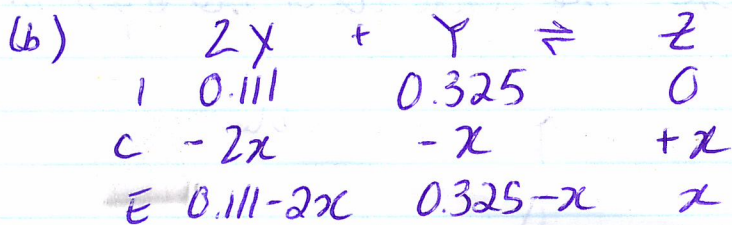 (b) 2X + Y ⇌ Z
I 0.111 0.325 0
C -2x -x +x
E 0.111-2x 0.325-x x